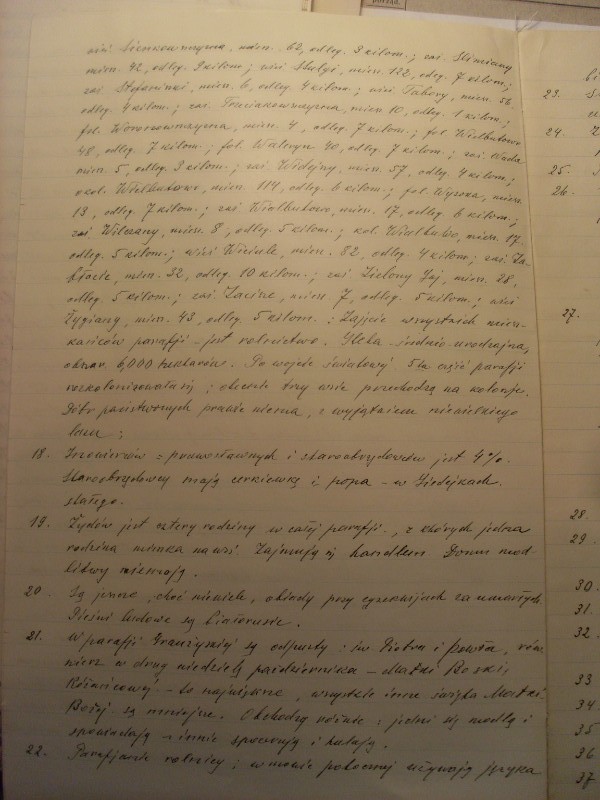 wieś Sienkowszczyzna, miesz. 62, odleg. 3 kilom.; zaś. Śliwiany
miesz. 42, odleg. 9 kilom.; wieś Skulgi, miesz. 122, odeg. 7 kilom.;
zaś Stefaninki, miesz. 6, odleg. 4 kilom.; wieś Tabory, miesz. 56,
odleg. 4 kilom.; zaś. miesz 10, odleg. 1 kilom.;
fol. Woronowszczyzna, miesz. 4, odleg. 7 kilom.; fol. Wialbutowo
48, odleg. 7 kilom.; fol. 40, odleg. 7 kilom.; zaś
miesz 5, odleg. 3 kilom.; zaś Widejny, miesz. 57, odleg. 4 kilom.;
okol. Wialbutowo, miesz. 114, odleg. 6 kilom.; fol. Wysoka, miesz.
13, odleg. 7 kilom.; zaś Wialbutowo, miesz. 17, odleg. 6 kilom.;
zaś Wilczany, miesz. 8, odleg. 5 kilom.; kol. Wialbutowo, miesz. 17.
odleg. 5 kilom.; wieś miesz. 82, odleg. 4 kilom.; zaś. Za-
błocie, miesz. 32, odleg. 10 kilom.; zaś Zielony Gaj, miesz. 28,
odleg. 5 kilom.; zaś Zacisze, miesz 7, odleg. 5 kilom.; wieś
Żygiany, miesz. 43, odleg. 5 kilom.: Zajęcie wszystkich miesz-
kańców parafji - jest rolnictwo. Gleba - średnio-urodzajna,
obszar. 6,000 hektarów. Po wojnie światowej 5ta część parafji
rozkolonizowała się; obecnie trzy wsie przechodzą na kolonje.
Dóbr państwowych prawie niema, z wyjątkiem niewielkiego
lasu;
18. Innowierców = prawosławnych i staroobrzędowców jest 4%.
Staroobrzędowcy mają cerkiewkę i popa - w
stałego.
19. Żydów jest cztery rodziny w całej parafji, z których jedna
rodzina mieszka na wsi. Zajmują się handlem. Domu mod-
litwy nie mają.
20. Są jeszcze, choć niewiele, obiady przy egzekwjach za umarłych.
Pieśni ludowe są białoruskie.
21. W parafji są odpusty: św. Piotra i Pawła, rów-
nież w drugą niedzielę października - Matki Boskiej
Różańcowej - to największe, wszystkie inne święta Matki
Bożej są mniejsze. Obchodzą różnie: jedni się modlą i
spowiadają - inni śpiewają i hulają.
22. Parafjanie rolnicy; w mowie potocznej używają języka
23.
24.
25
26.
27.
28.
29.
30.
31.
32
33
34.
35
36
37